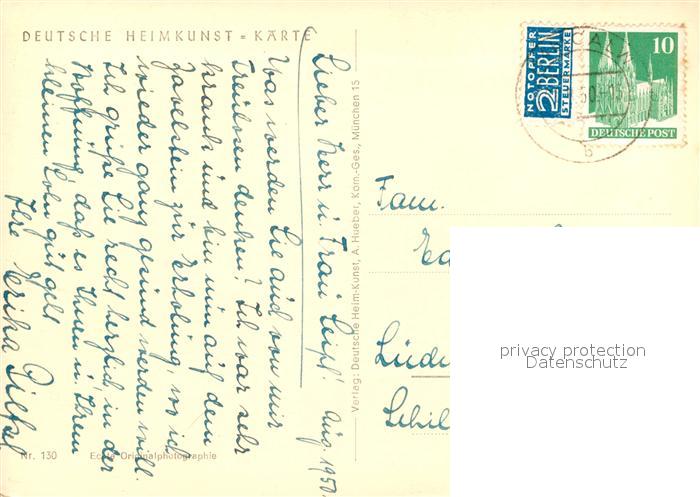 DEUTSCHE HEIMKUNST = KARTE
Lieber Herr u. Frau Leipf! Aug. 1950.
Was werden Sie auch von mir
Treulosen denken? Ich war sehr
krank und bin nun auf dem
Zavelstein zur Erholung, wo ich
wieder ganz gesund werden will.
Ich grüße Sie recht herzlich in der
Hoffnung, daß es Ihnen u. Ihrem
kleinen Sohn gut geht
Ihre Erika
Nr. 130 Echte Originalphotographie
Verlag: Deutsche Heim-Kunst, A. Hueber, Kom.-Ges., München 15
NOTOPFER
2 BERLIN
STEUERMARKE
10
DEUTSCHE POST
CALW
b
Fam.
Lüden
Schil
privacy protection
Datenschutz